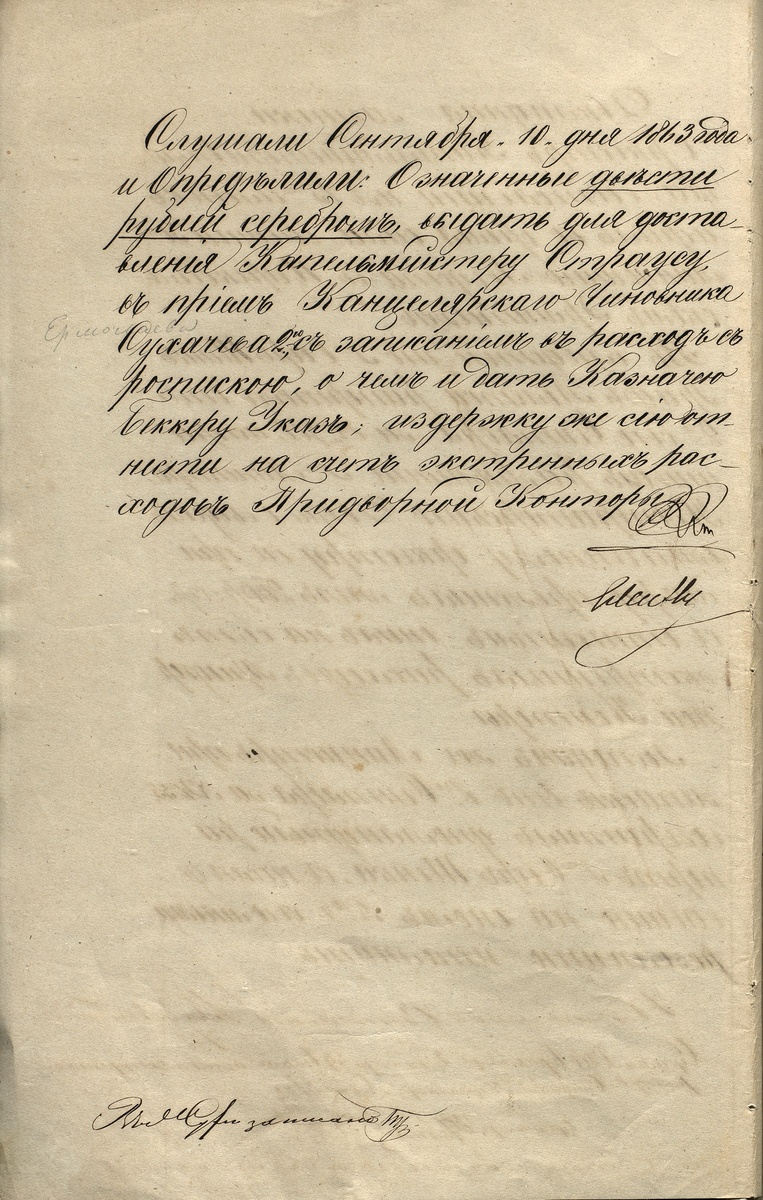 Слушали Сентября „10„ дня 1863 года
и Опредѣлили: Означенные двѣсти
рублей серебромъ, выдать для доста-
вленія Капельмейстеру Страусу,
въ пріемъ Канцелярскаго Чиновника
Сухачева 2го съ записаніемъ въ расходъ съ
роспискою, о чемъ и дать Казначею
Беккеру Указъ; издержку же сію от-
нести на счетъ экстренныхъ рас-
ходовъ Придворной Конторы
записано